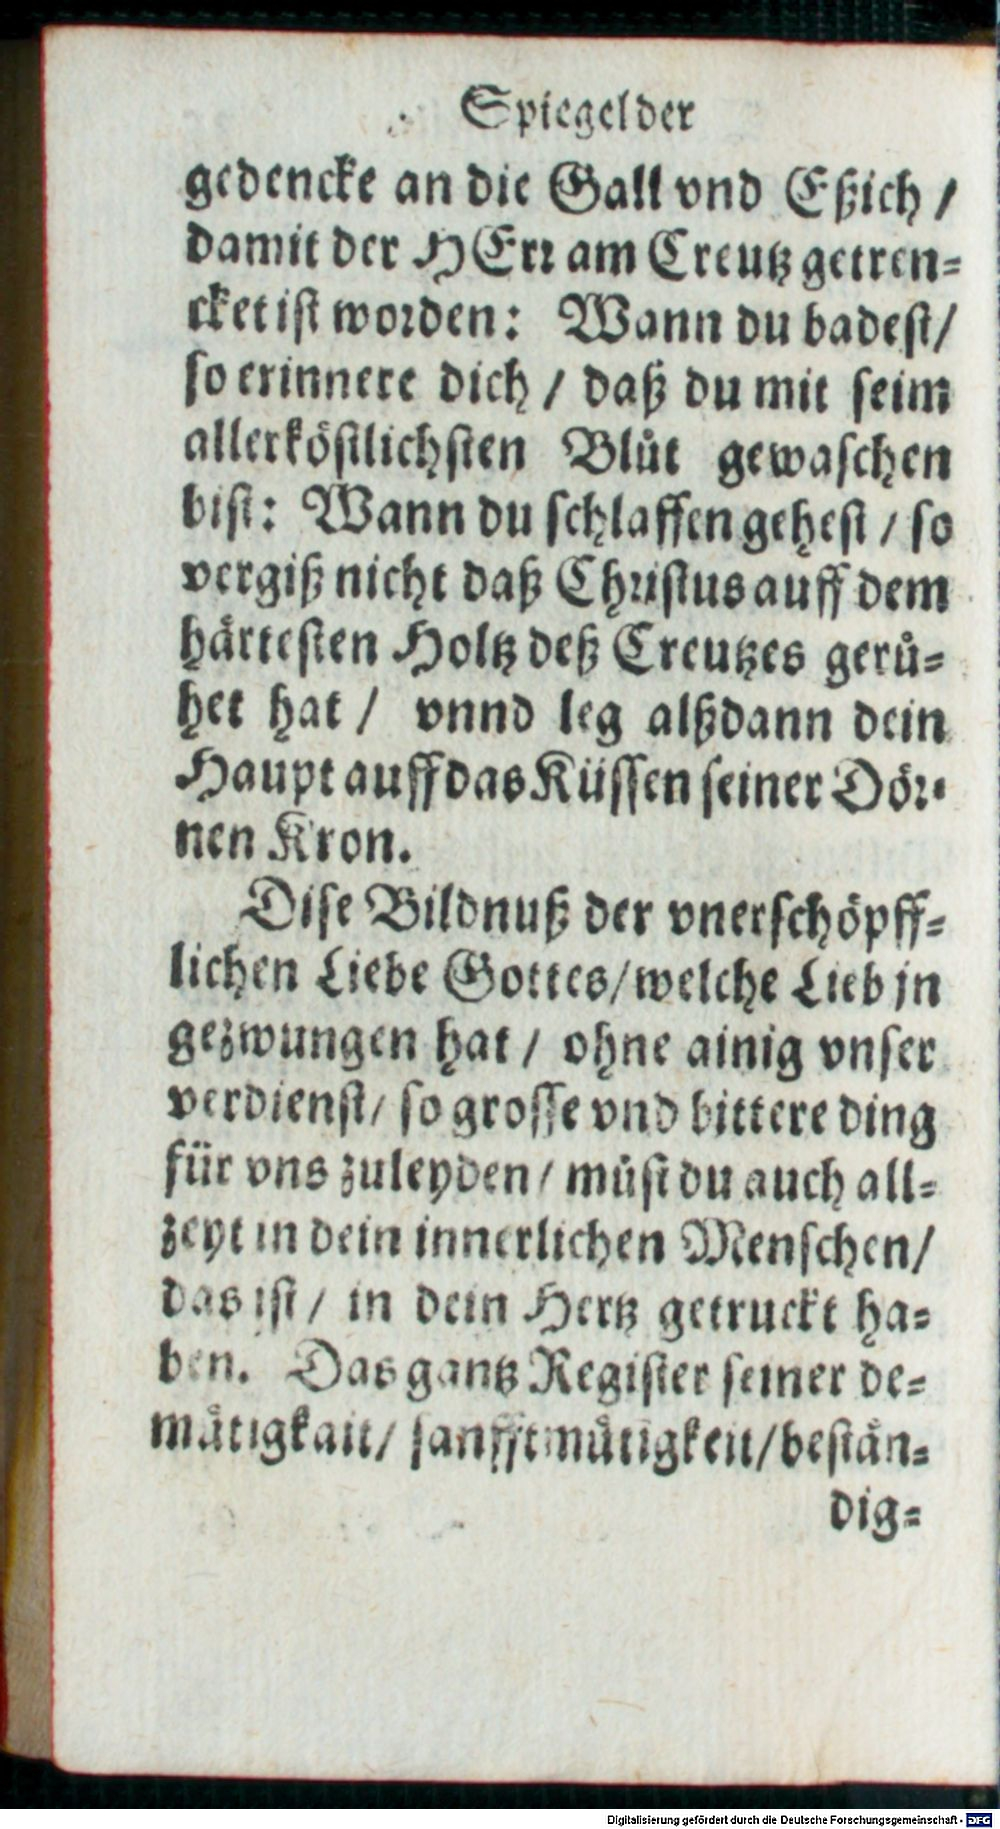 Spiegel der
gedencke an die Gall vnd Eßich /
damit der HErr am Creutz getren-
cket ist worden: Wann du badest/
so erinnere dich / daß du mit seim
allerköstlichsten Blůt gewaschen
bist: Wann du schlaffen gehest / so
vergiß nicht daß Christus auff dem
härtesten Holtz deß Creutzes gerů-
het hat / vnnd leg alßdann dein
Haupt auff das Küssen seiner Dör-
nen Kron.
Dise Bildnuß der vnerschöpff-
lichen Liebe Gottes/ welche Lieb jn
gezwungen hat / ohne ainig vnser
verdienst/ so grosse vnd bittere ding
für vns zuleyden / můst du auch all-
zeyt in dein innerlichen Menschen/
das ist / in dein Hertz getruckt ha-
ben. Das gantz Register seiner de-
můtigkait/ sanfftmůtigkeit/ bestän-
dig-
Digitalisierung gefördert durch die Deutsche Forschungsgemeinschaft - DFG